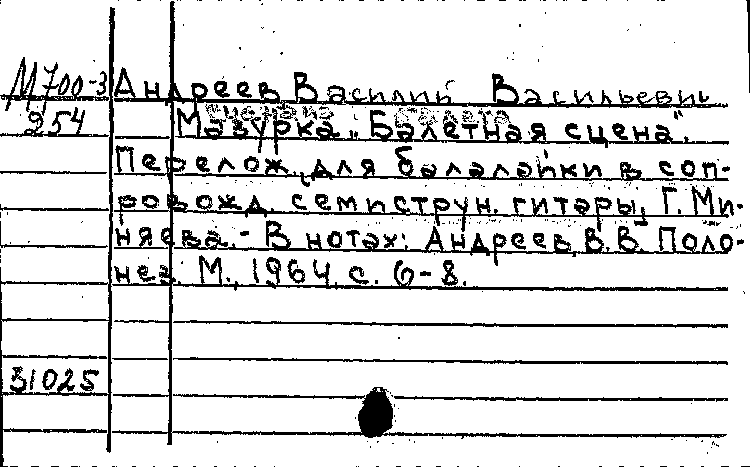 М700-3 Андреев Василий Васильевич
254 Мазурка „Балетная сцена".
Перелож. для балалайки в соп-
ровожд. семиструн. гитары, Г. Ми-
няева. - В нотах: Андреев, В.В. Поло-
нез. М., 1964, с. 6-8.
31025